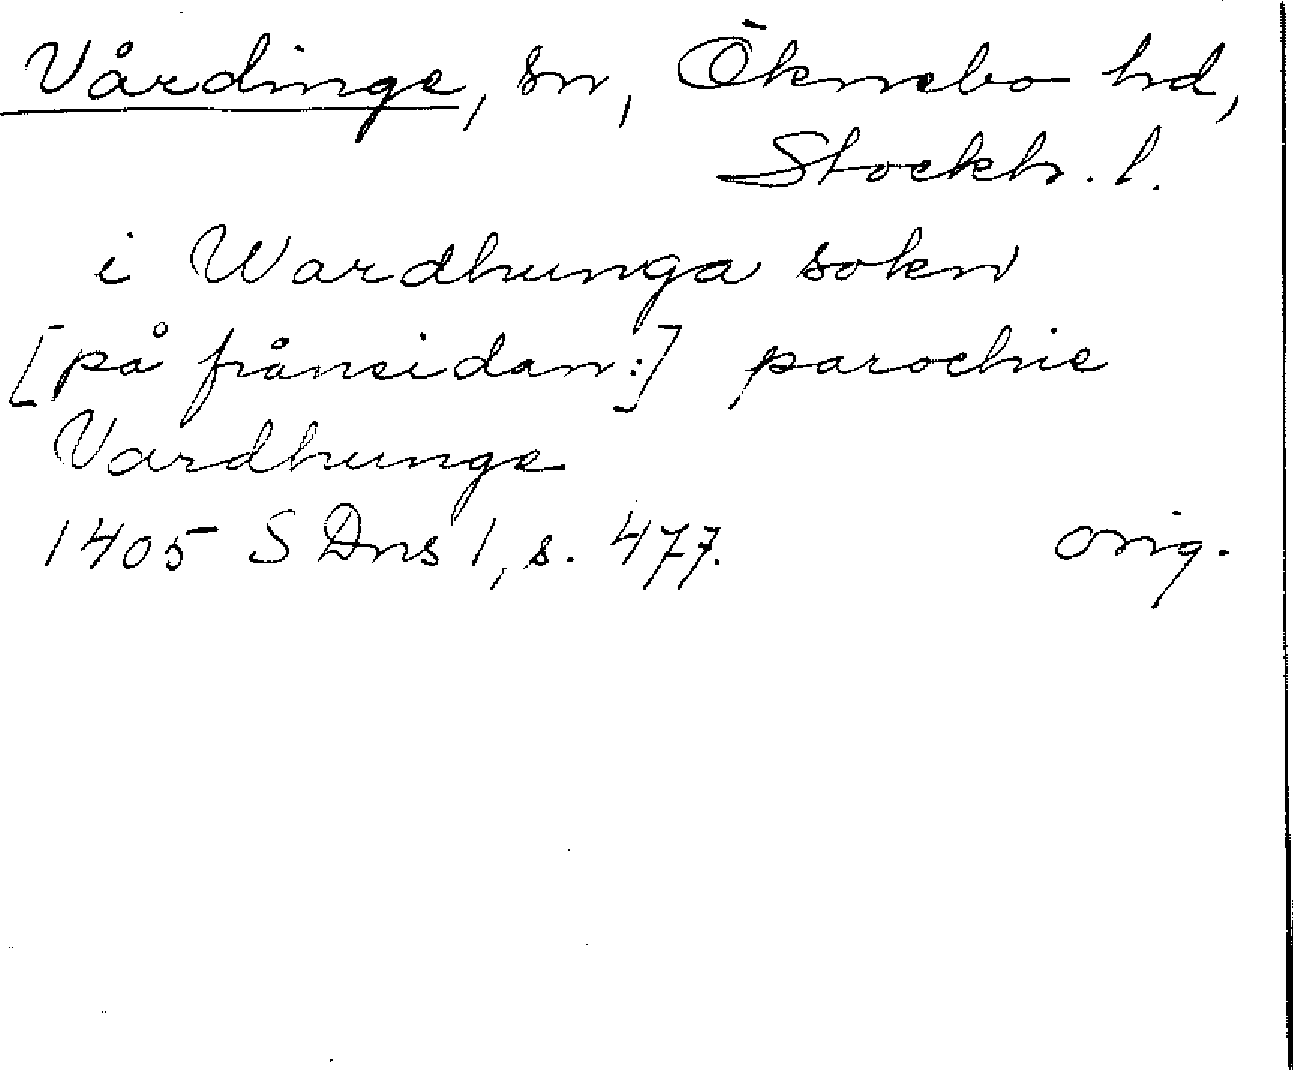 Vårdinge, sn, Öknebo hd,
Stockh. l.
i Wardhunga sokn
[på frånsidan:] parochie
Vardhunge
1405 S Dns 1, s. 477.   orig.